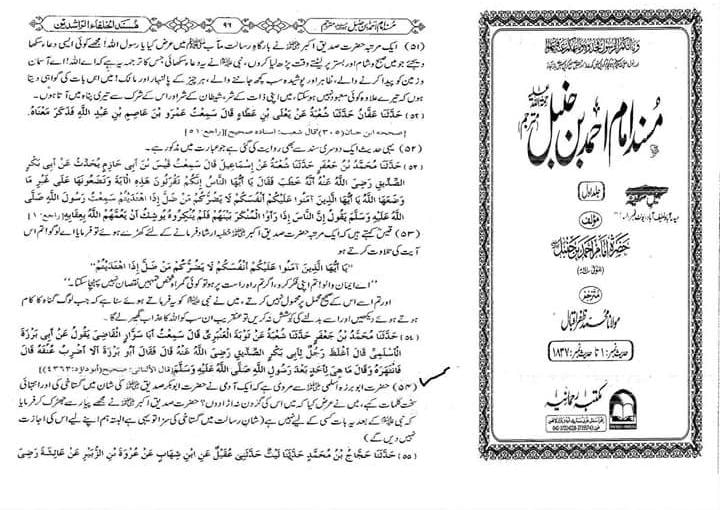 مُسند الخلفاء الراشدین
۹۶
مُسنَد امام احمد بن حنبل مترجم
(۵۱) ایک مرتبہ حضرت صدیق اکبر نے بارگاہِ رسالت مآب میں عرض کیا یا رسول اللہ! مجھے کوئی ایسی دعاء سکھا
دیجئے جو میں صبح و شام اور بستر پر لیٹتے وقت پڑھ لیا کروں، نبی نے یہ دعاء سکھائی، جس کا ترجمہ یہ ہے کہ اے اللہ! اے آسمان
و زمین کو پیدا کرنے والے، ظاہر اور پوشیدہ سب کچھ جاننے والے، ہر چیز کے پالنہار اور مالک! میں اس بات کی گواہی دیتا
ہوں کہ تیرے علاوہ کوئی معبود نہیں ہو سکتا، میں اپنی ذات کے شر، شیطان کے شر اور اس کے شرک سے تیری پناہ میں آتا ہوں۔
(۵۲) حَدَّثَنَا عَفَّانُ حَدَّثَنَا شُعْبَةُ عَنْ يَعْلَى بْنِ عَطَاءٍ قَالَ سَمِعْتُ عَمْرَو بْنَ عَاصِمِ بْنِ عَبْدِ اللَّهِ فَذَكَرَ مَعْنَاهُ.
[صححه ابن حبان (۳۰۵) قال شعيب: اسناده صحيح] [راجع: ۵۱]
(۵۲) یہی حدیث ایک دوسری سند سے بھی روایت کی گئی ہے جو عبارت میں مذکور ہے۔
(۵۳) حَدَّثَنَا مُحَمَّدُ بْنُ جَعْفَرٍ حَدَّثَنَا شُعْبَةُ عَنْ إِسْمَاعِيلَ قَالَ سَمِعْتُ قَيْسَ بْنَ أَبِي حَازِمٍ يُحَدِّثُ عَنْ أَبِي بَكْرٍ
الصِّدِّيقِ رَضِيَ اللَّهُ عَنْهُ أَنَّهُ خَطَبَ فَقَالَ يَا أَيُّهَا النَّاسُ إِنَّكُمْ تَقْرَءُونَ هَذِهِ الْآيَةَ وَتَضَعُونَهَا عَلَى غَيْرِ مَا
وَضَعَهَا اللَّهُ يَا أَيُّهَا الَّذِينَ آمَنُوا عَلَيْكُمْ أَنْفُسَكُمْ لَا يَضُرُّكُمْ مَنْ ضَلَّ إِذَا اهْتَدَيْتُمْ سَمِعْتُ رَسُولَ اللَّهِ صَلَّى
اللَّهُ عَلَيْهِ وَسَلَّمَ يَقُولُ إِنَّ النَّاسَ إِذَا رَأَوْا الْمُنْكَرَ بَيْنَهُمْ فَلَمْ يُنْكِرُوهُ يُوشِكُ أَنْ يَعُمَّهُمْ اللَّهُ بِعِقَابِهِ [راجع: ۱]
(۵۳) قیس کہتے ہیں کہ ایک مرتبہ حضرت صدیق اکبر خطبہ ارشاد فرمانے کے لئے کھڑے ہوئے تو فرمایا اے لوگو! تم اس
آیت کی تلاوت کرتے ہو
"يَا أَيُّهَا الَّذِينَ آمَنُوا عَلَيْكُمْ أَنْفُسَكُمْ لَا يَضُرُّكُمْ مَنْ ضَلَّ إِذَا اهْتَدَيْتُمْ"
"اے ایمان والو! تم اپنی فکر کرو، اگر تم راہ راست پر ہو تو کوئی گمراہ شخص تمہیں نقصان نہیں پہنچا سکتا۔"
اور تم اسے اس کے صحیح محمل پر محمول نہیں کرتے، میں نے نبی کو یہ فرماتے ہوئے سنا ہے کہ جب لوگ گناہ کا کام
ہوتے ہوئے دیکھیں اور اسے بدلنے کی کوشش نہ کریں تو عنقریب ان سب کو اللہ کا عذاب گھیر لے گا۔
(۵۴) حَدَّثَنَا مُحَمَّدُ بْنُ جَعْفَرٍ حَدَّثَنَا شُعْبَةُ عَنْ تَوْبَةَ الْعَنْبَرِيِّ قَالَ سَمِعْتُ أَبَا سَوَّارٍ الْقَاضِيَ يَقُولُ عَنْ أَبِي بَرْزَةَ
الْأَسْلَمِيِّ قَالَ أَغْلَظَ رَجُلٌ لِأَبِي بَكْرٍ الصِّدِّيقِ رَضِيَ اللَّهُ عَنْهُ قَالَ فَقَالَ أَبُو بَرْزَةَ أَلَا أَضْرِبُ عُنُقَهُ قَالَ
فَانْتَهَرَهُ وَقَالَ مَا هِيَ لِأَحَدٍ بَعْدَ رَسُولِ اللَّهِ صَلَّى اللَّهُ عَلَيْهِ وَسَلَّمَ [قال الألباني: صحيح (أبوداؤد: ۴۳۶۳)]
(۵۴) حضرت ابو برزہ اسلمی سے مروی ہے کہ ایک آدمی نے حضرت ابوبکر صدیق کی شان میں گستاخی کی اور انتہائی
سخت کلمات کہے، میں نے عرض کیا کہ میں اس کی گردن نہ اڑا دوں؟ حضرت صدیق اکبر نے مجھے پیار سے جھڑک کر فرمایا
کہ نبی کے بعد یہ بات کسی کے لئے نہیں ہے (شان رسالت میں گستاخی کی سزا تو یہی ہے البتہ ہم اپنے لیے اس کی اجازت
نہیں دیں گے)
(۵۵) حَدَّثَنَا حَجَّاجُ بْنُ مُحَمَّدٍ حَدَّثَنَا لَيْثٌ حَدَّثَنِي عُقَيْلٌ عَنِ ابْنِ شِهَابٍ عَنْ عُرْوَةَ بْنِ الزُّبَيْرِ عَنْ عَائِشَةَ رَضِيَ
مُسند امام احمد بن حنبل
مترجم
جلد اول
مؤلف
حضرۃ امام احمد بن حنبل
مترجم
مولانا محمد ظفر اقبال
حدیث نمبر: ۱ تا حدیث نمبر: ۱۸۳۷
مکتبہ رحمانیہ